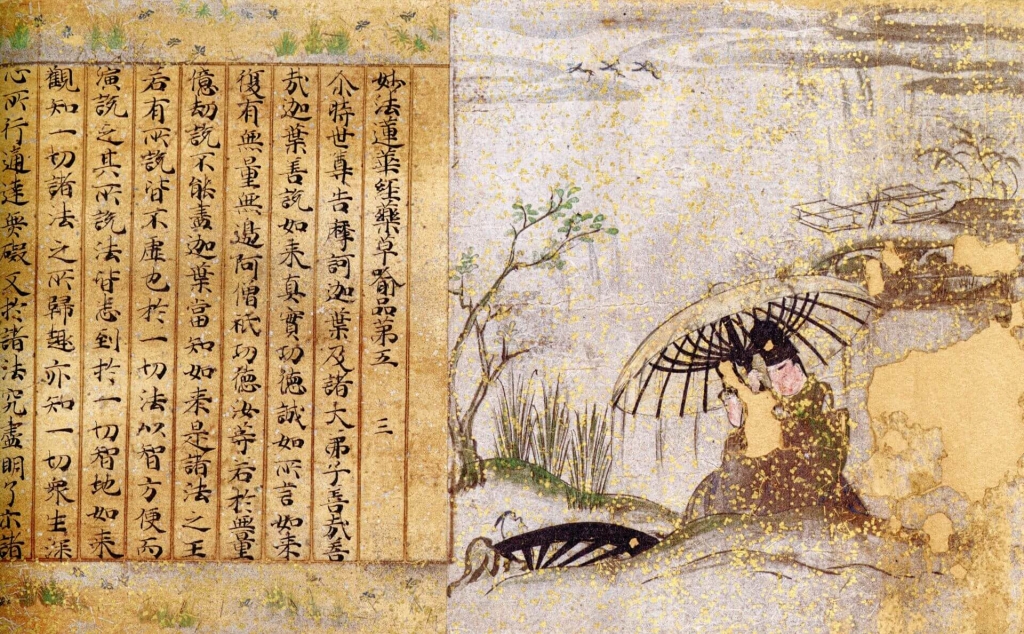 妙法蓮華経藥草喩品第五 三
尒時世尊告摩訶迦葉及諸大弟子善哉善
哉迦葉善説如来真實功徳誠如所言如来
復有無量無邊阿僧祇功徳汝等若於無量
億劫説不能盡迦葉當知如来是諸法之王
若有所説皆不虚也於一切法以智方便而
演説之其所説法皆悉到於一切智地如来
觀知一切諸法之所歸趣亦知一切衆生深
心所行通達無礙又於諸法究盡明了示諸